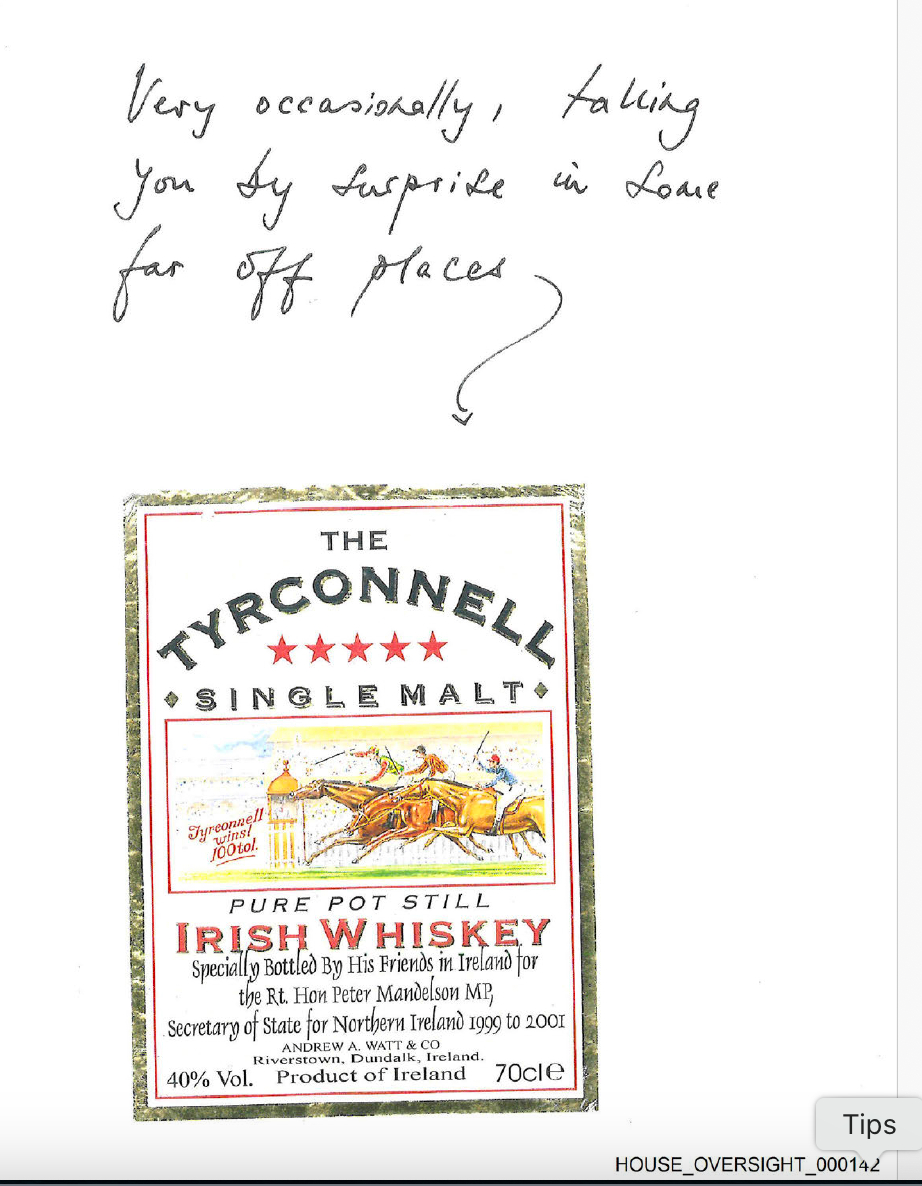 Very occasionally, taking
you by surprise in some
far off places
THE
TYRCONNELL
SINGLE MALT
Tyrconnell
wins!
100to1.
PURE POT STILL
IRISH WHISKEY
Specially Bottled By His Friends in Ireland for
the Rt. Hon Peter Mandelson MP,
Secretary of State for Northern Ireland 1999 to 2001
ANDREW A. WATT & CO
Riverstown, Dundalk, Ireland.
40% Vol. Product of Ireland 70cle
Tips
HOUSE_OVERSIGHT_000142